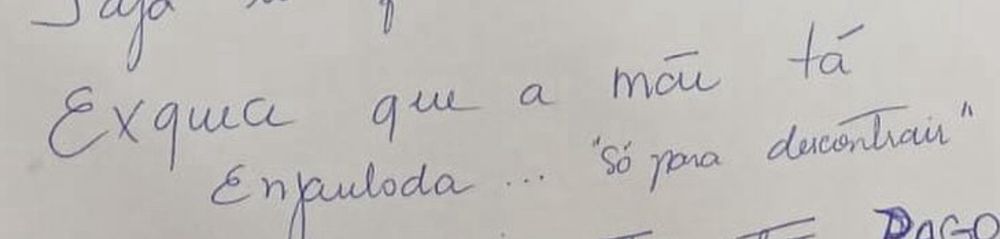 Exqueça que a mãe tá
Enjaulada ... "só para descontrair"
PAGO